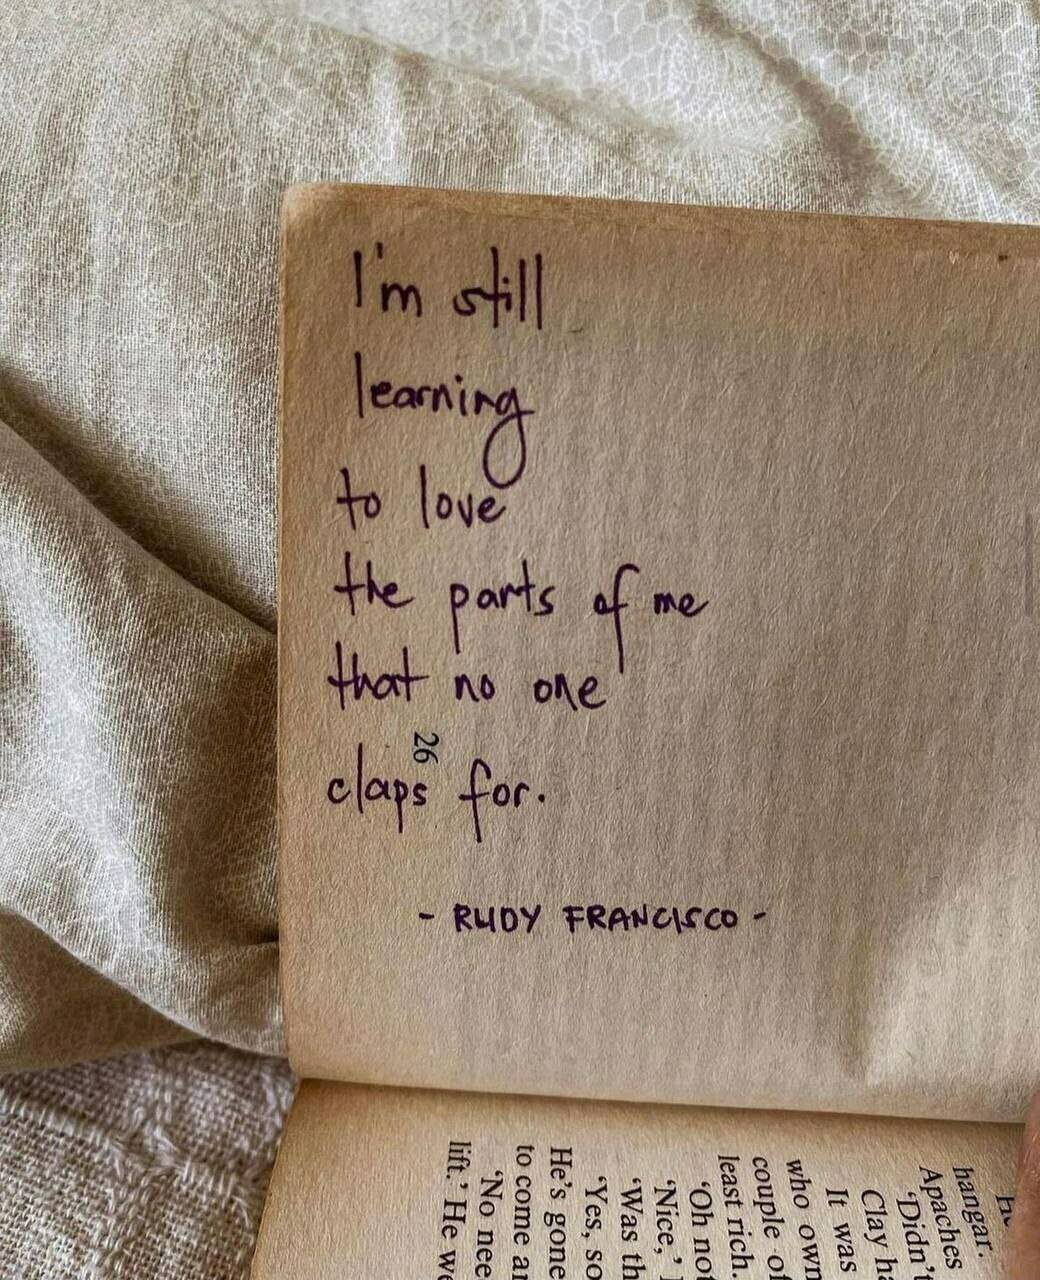 I'm still
learning
to love
the parts of me
that no one
claps for.
- RUDY FRANCISCO -
26
hangar.
Apaches
'Didn't
Clay ha
It was
who own
couple of
least rich.
'Oh not
'Nice,' I
'Was th
'Yes, so
He's gone
to come an
'No nee
lift.' He we